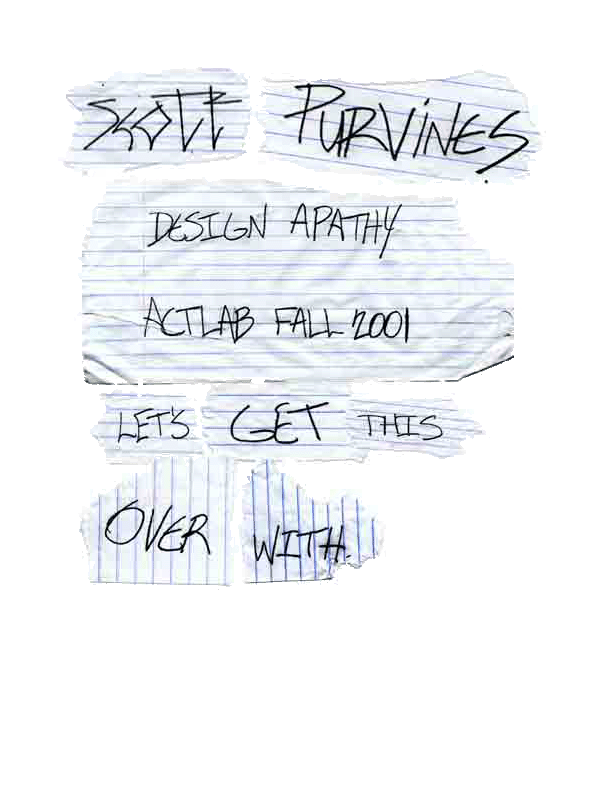 SCOTT PURViNES
DESIGN APATHY
ACTLAB FALL 2001
LET'S GET THIS
OVER WITH.